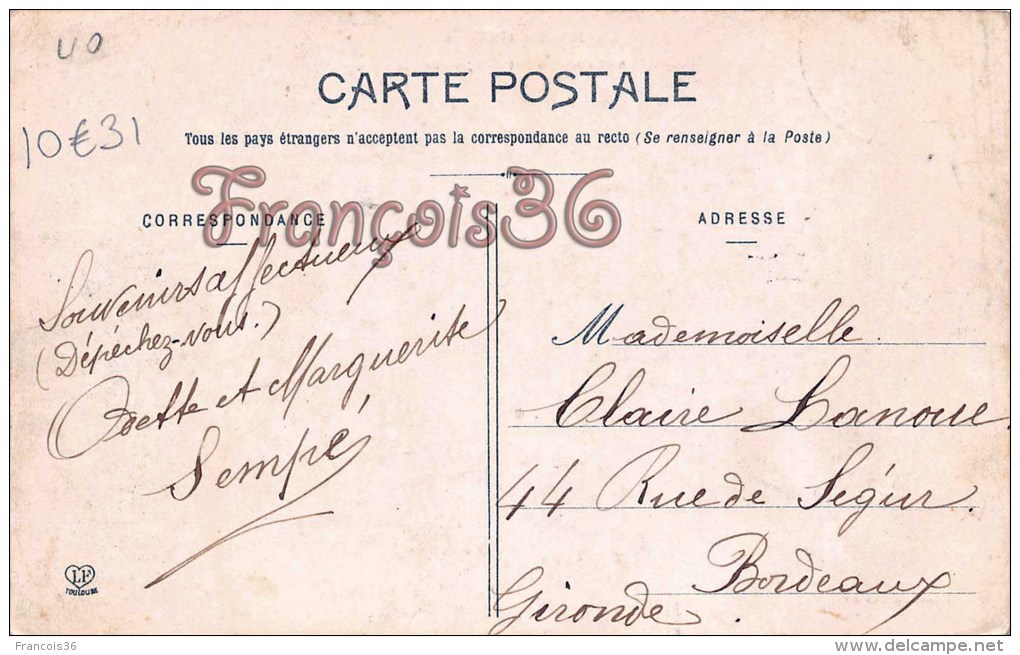 40
10€31
CARTE POSTALE
Tous les pays étrangers n'acceptent pas la correspondance au recto (Se renseigner à la Poste)
François36
CORRESPONDANCE
Souvenirs affectueux
(Dépêchez-vous.)
Odette et Marguerite
Sempé
LF
TOULOUSE
ADRESSE
Mademoiselle
Claire Lanoue
44 Rue de Ségur.
Bordeaux
Gironde.
Francois36
www.delcampe.net